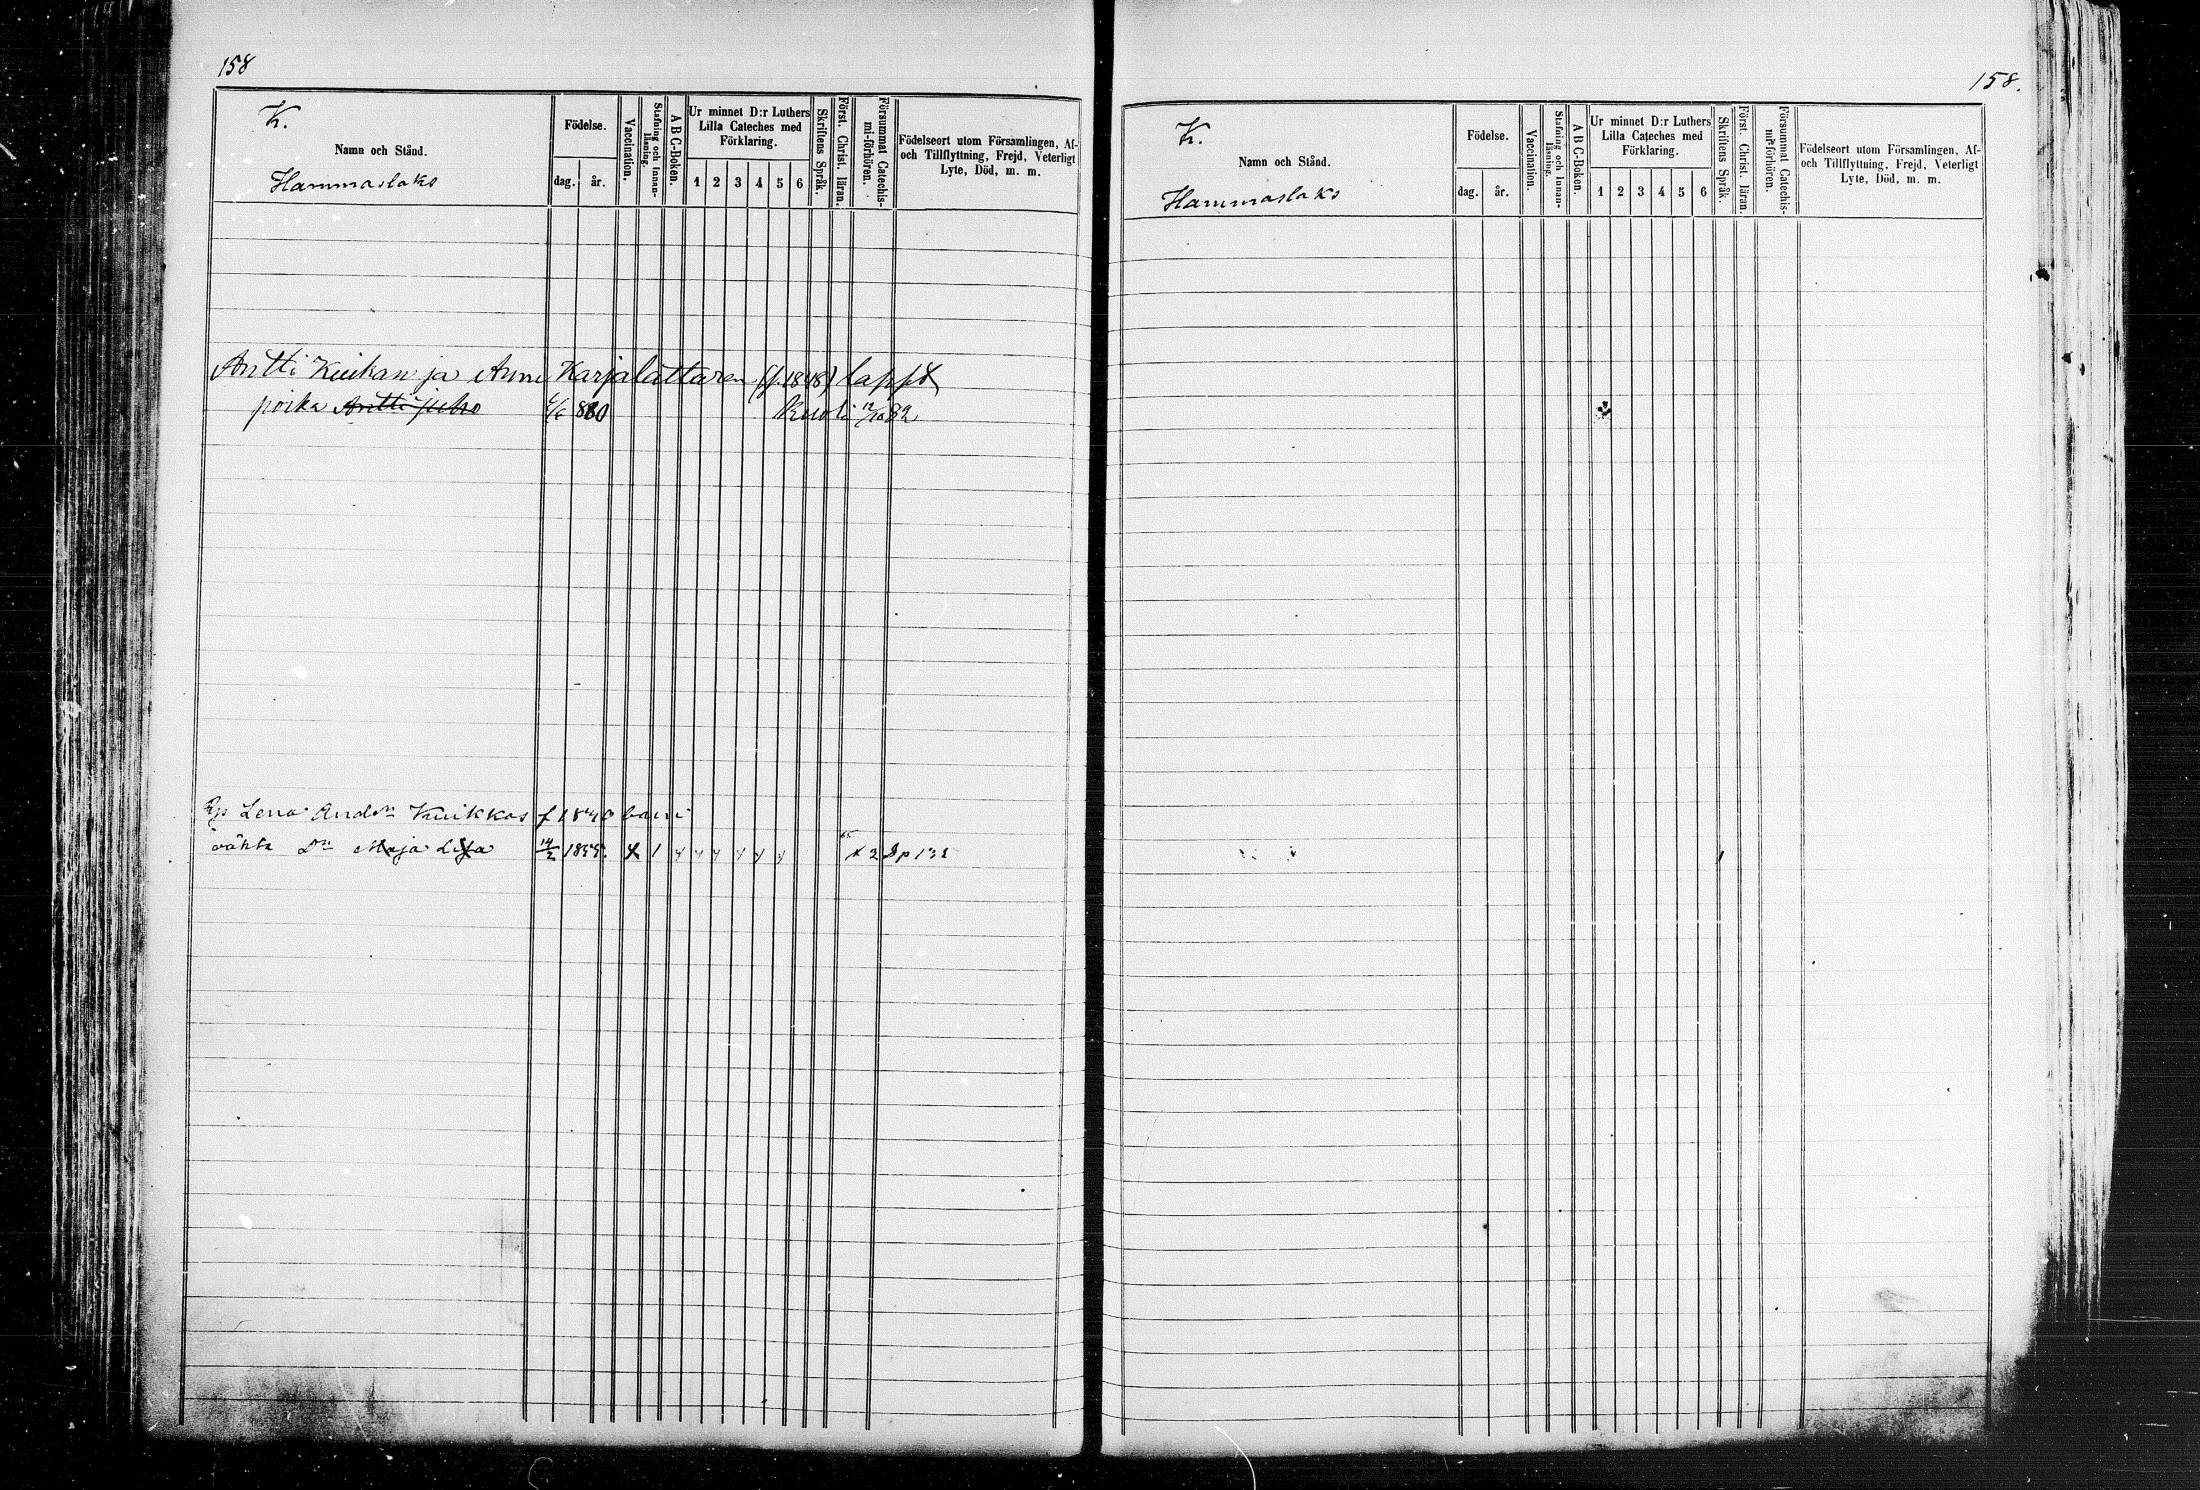 158
K.
Namn och Stånd.
Hammaslaks
Födelse.
dag.
år.
Vaccination.
Stafning och Innan-läsning.
A B C-Boken.
Ur minnet D:r Luthers
Lilla Cateches med
Förklaring.
1 2 3 4 5 6
Skriftens Språk.
Först. Christ. läran.
Försummat Catechis-mi-förhören.
Födelseort utom Församlingen, Af-
och Tillflyttning, Frejd, Veterligt
Lyte, Död, m. m.
Antti Kuikan ja Anni Karjalattaren (f. 1848) lapp
poika Antti Juho 880 Kuoli 12/10 82
Lena And:n Kuikkas f 1840 barn
oäkta D:n Maja Lisa 14/2 1855. x 1 x 2 S p 132
158.
K.
Namn och Stånd.
Hammaslaks
Födelse.
dag.
år.
Vaccination.
Stafning och Innan-läsning.
A B C-Boken.
Ur minnet D:r Luthers
Lilla Cateches med
Förklaring.
1 2 3 4 5 6
Skriftens Språk.
Först. Christ. läran.
Försummat Catechis-mi-förhören.
Födelseort utom Församlingen, Af-
och Tillflyttning, Frejd, Veterligt
Lyte, Död, m. m.